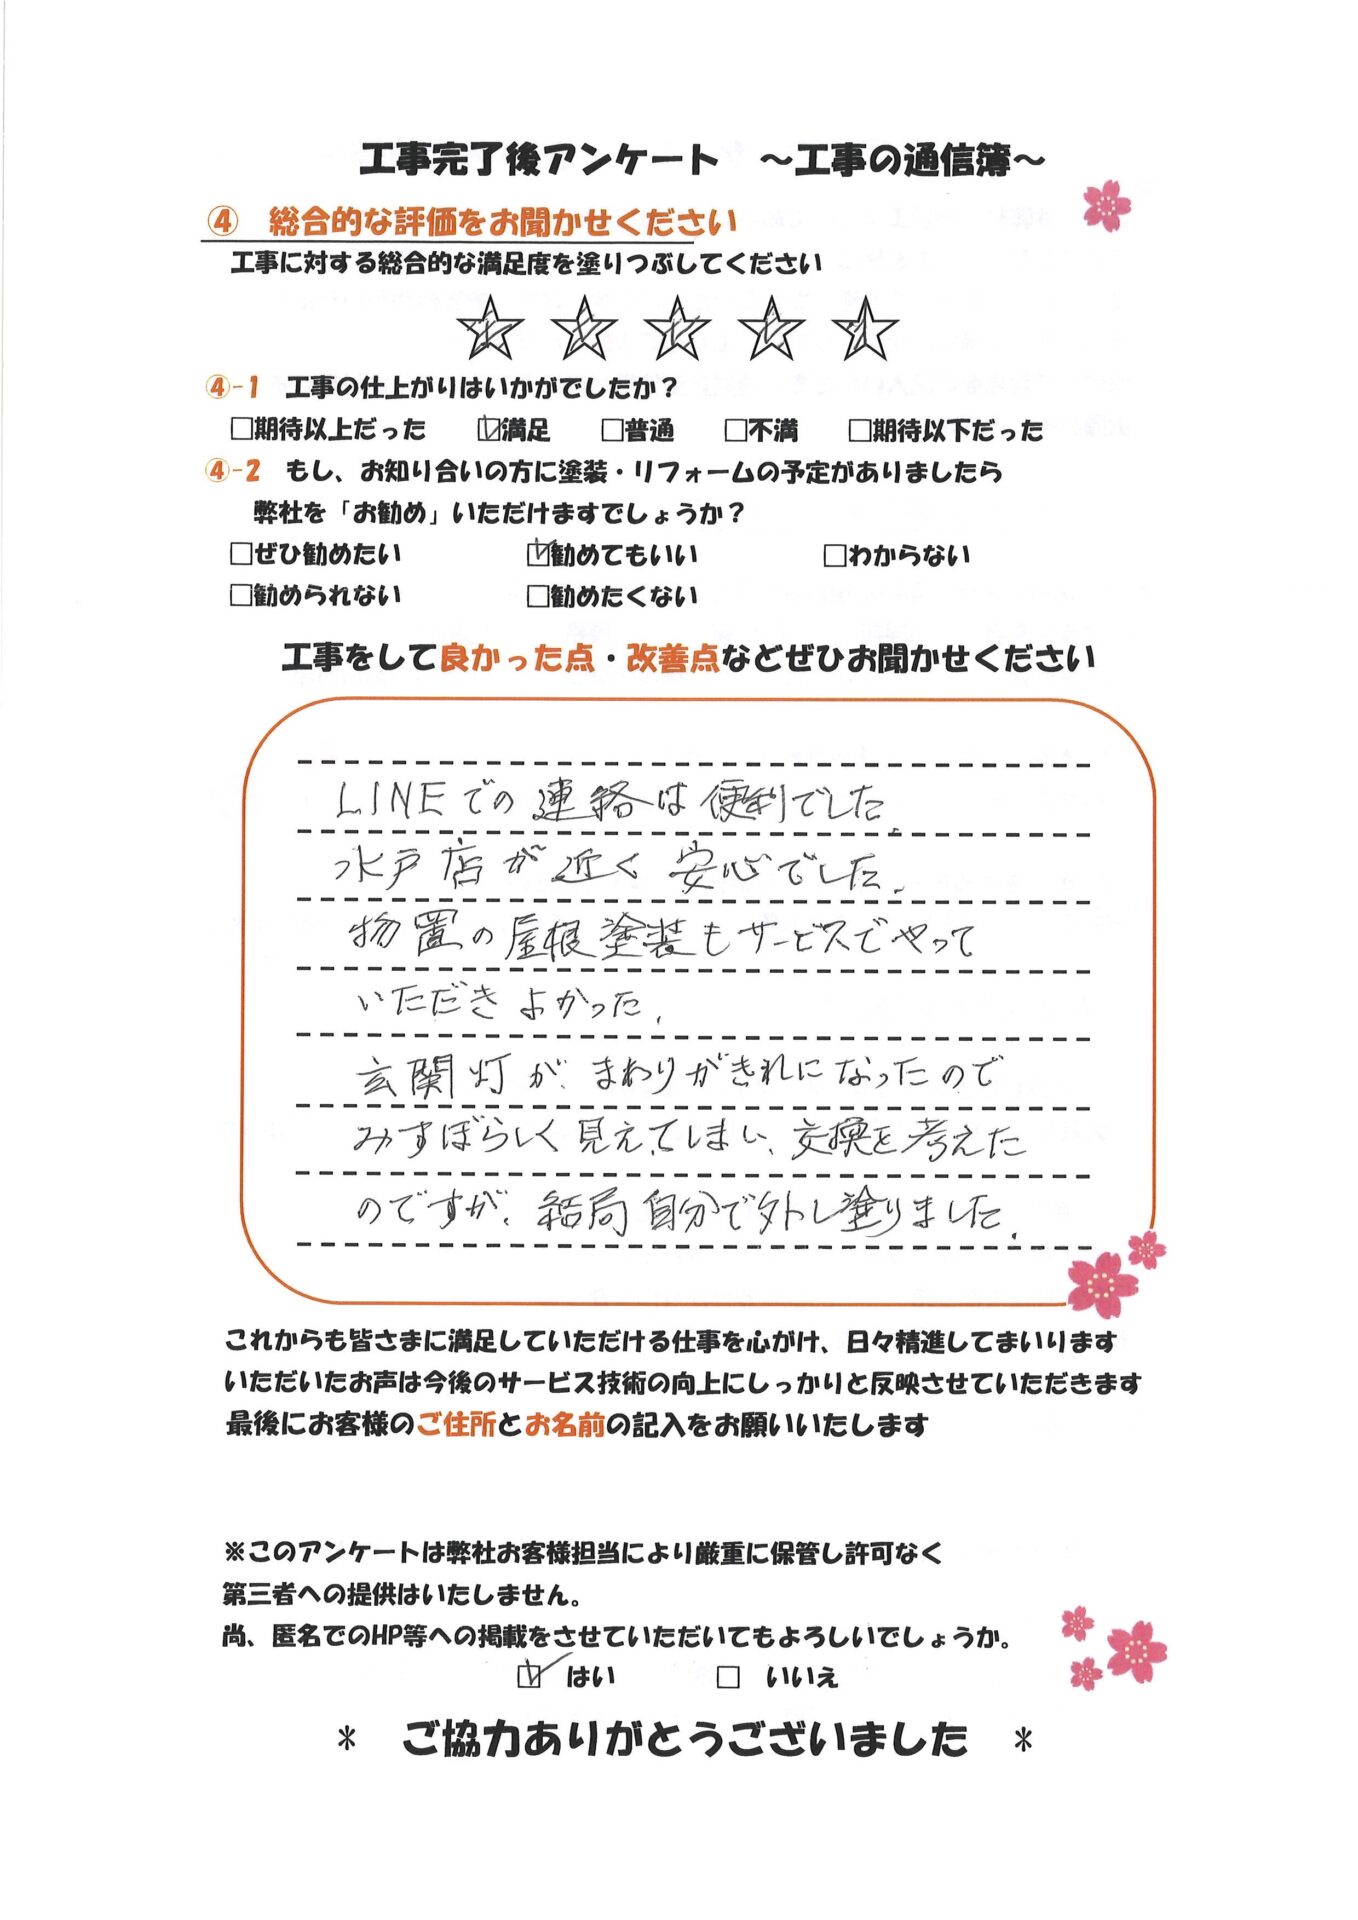 工事完了後アンケート　～工事の通信簿～
④　総合的な評価をお聞かせください
工事に対する総合的な満足度を塗りつぶしてください
☆☆☆☆☆
④-1　工事の仕上がりはいかがでしたか？
□期待以上だった　☑満足　□普通　□不満　□期待以下だった
④-2　もし、お知り合いの方に塗装・リフォームの予定がありましたら
弊社を「お勧め」いただけますでしょうか？
□ぜひ勧めたい　☑勧めてもいい　□わからない
□勧められない　□勧めたくない
工事をして良かった点・改善点などぜひお聞かせください
LINEでの連絡は便利でした。
水戸店が近く安心でした。
物置の屋根塗装もサービスでやって
いただきよかった。
玄関灯が、まわりがきれになったので
みすぼらしく見えてしまい、交換を考えた
のですが、結局自分で外し塗りました。
これからも皆さまに満足していただける仕事を心がけ、日々精進してまいります
いただいたお声は今後のサービス技術の向上にしっかりと反映させていただきます
最後にお客様のご住所とお名前の記入をお願いいたします
※このアンケートは弊社お客様担当により厳重に保管し許可なく
第三者への提供はいたしません。
尚、匿名でのHP等への掲載をさせていただいてもよろしいでしょうか。
☑　はい　□　いいえ
＊　ご協力ありがとうございました　＊